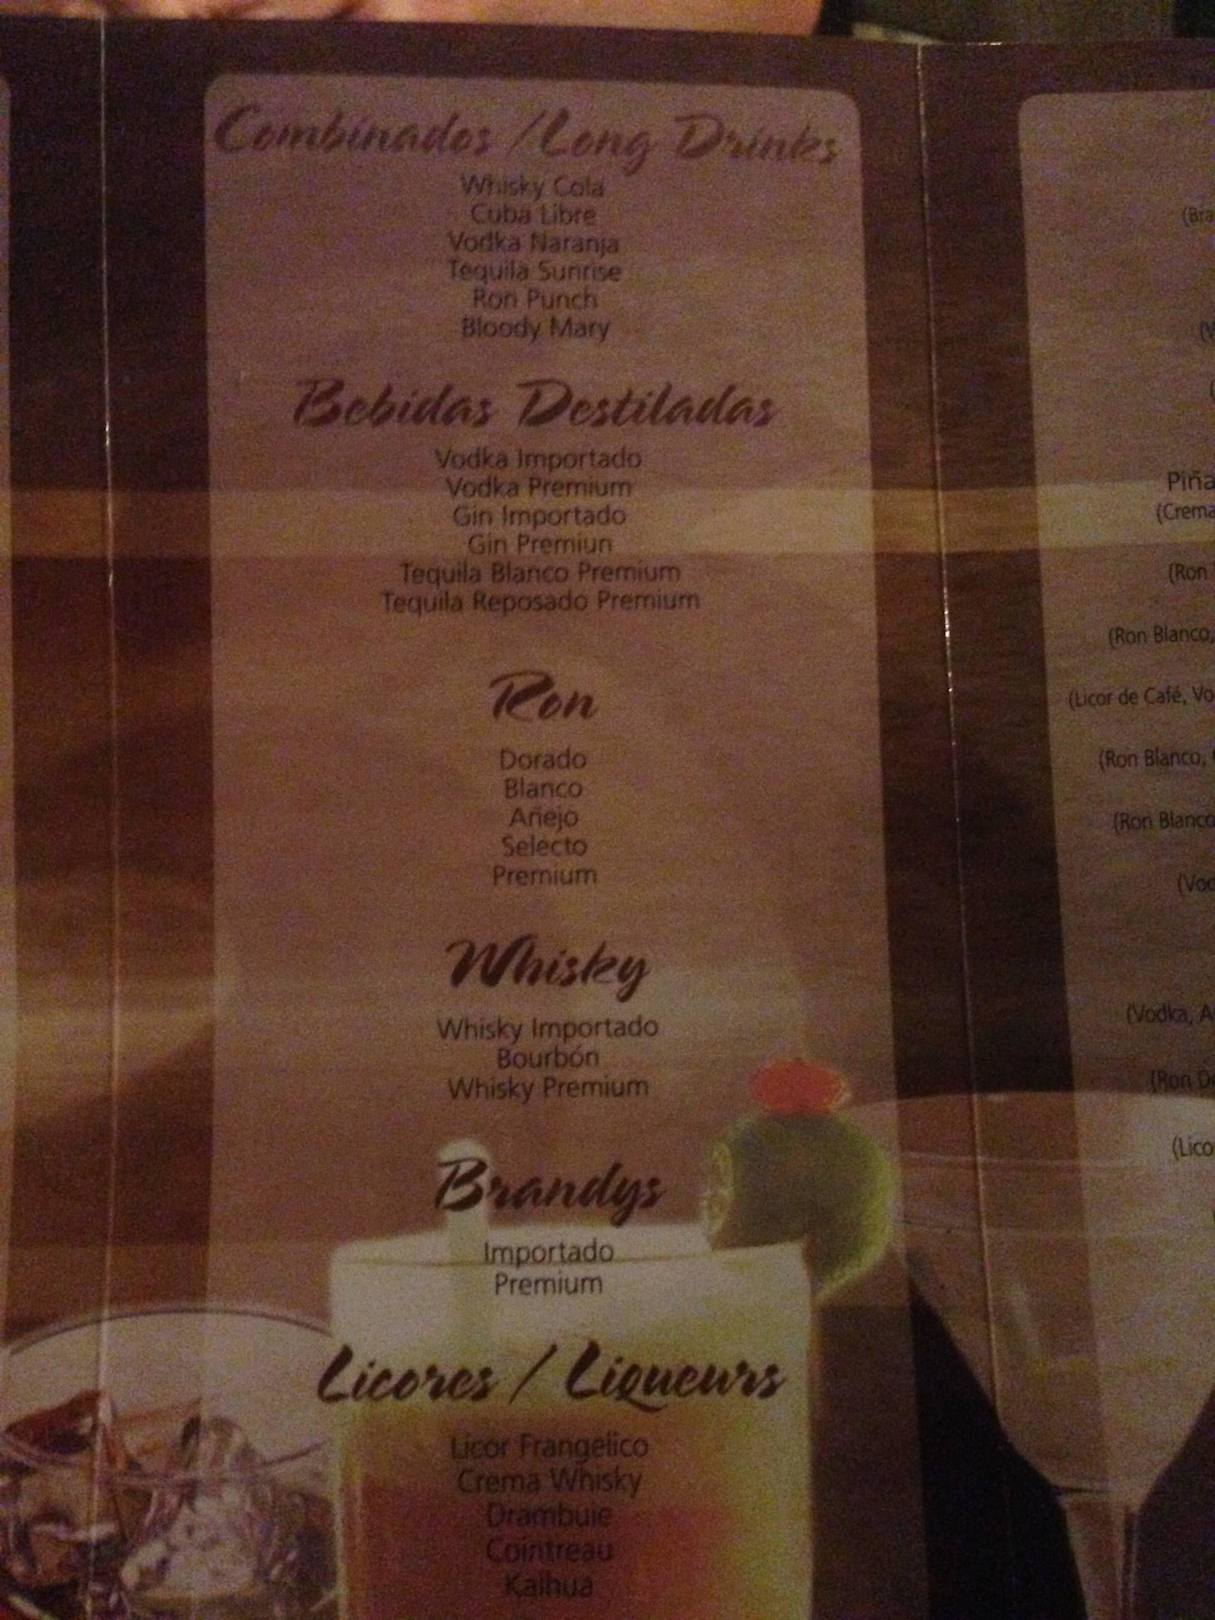 Combinados / Long Drinks
Whisky Cola
Cuba Libre
Vodka Naranja
Tequila Sunrise
Ron Punch
Bloody Mary
Bebidas Destiladas
Vodka Importado
Vodka Premium
Gin Importado
Gin Premiun
Tequila Blanco Premium
Tequila Reposado Premium
Ron
Dorado
Blanco
Añejo
Selecto
Premium
Whisky
Whisky Importado
Bourbón
Whisky Premium
Brandys
Importado
Premium
Licores / Liqueurs
Licor Frangelico
Crema Whisky
Drambuie
Cointreau
Kalhua
(Bra
Piña
(Crema
(Ron
(Ron Blanco,
(Licor de Café, Vo
(Ron Blanco,
(Ron Blanco
(Vod
(Vodka, A
(Ron Do
(Lico